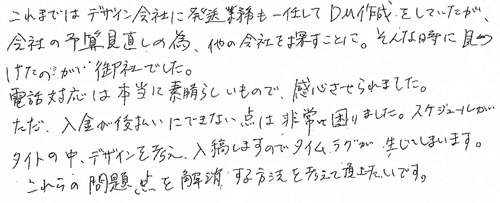 これまではデザイン会社に発送業務も一任してDM作成をしていたが、
会社の予算見直しの為、他の会社を探すことに。そんな時に見つ
けたのが御社でした。
電話対応は本当に素晴らしいもので、感心させられました。
ただ、入金が後払いにできない点は非常に困りました。スケジュールが
タイトの中、デザインを考え、入稿しますのでタイムラグが生じてしまいます。
これらの問題点を解消する方法を考えて頂上たいです。